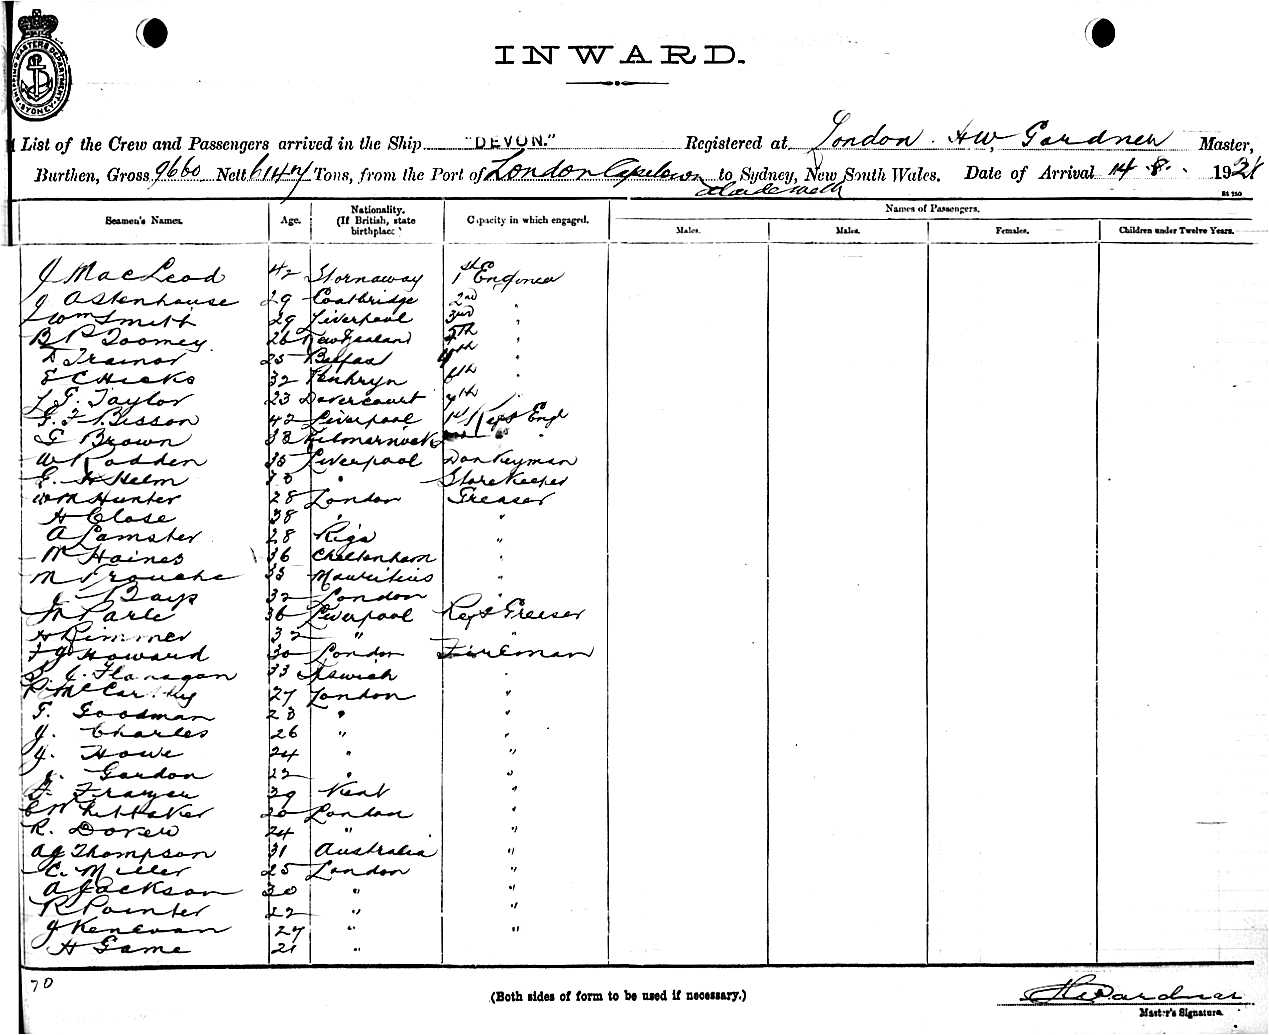 INWARD.
List of the Crew and Passengers arrived in the Ship "DEVON." Registered at London. HW, Gardner Master,
Burthen, Gross 9660 Nett 6147 Tons, from the Port of London Capetown to Sydney, New South Wales. Date of Arrival 14.8. 1928
Seamen's Names. Age. Nationality. (If British, state birthplace) Capacity in which engaged. Names of Passengers.
Males. Males. Females. Children under Twelve Years.
J MacLeod 42 Stornaway 1st Engineer
J A Stenhouse 29 Coatbridge 2nd "
Wm Smith 29 Liverpool 3rd "
B P Toomey 26 New Zealand 5th "
Trainor 25 Belfast 4th "
E C Hicks 32 Penhryn 6th "
J G. Taylor 23 Dovercourt 7th "
G. F. Bisson 42 Liverpool 1st Refg Engr
G Brown 38 Kilmarnock "
W Rodden 35 Liverpool Donkeyman
G. H Helm " Storekeeper
Wm Hunter 28 London Greaser
H Close 38 " "
A Lamster 28 Riga "
W Haines 36 Cheltenham "
M 33 Mauritius "
J Bays 32 London "
M Parle 36 Liverpool Refg Greaser
H Rimmer 32 " "
F J Howard 30 London Fireman
J. Flanagan 33 Ipswich "
McCarthy 27 London "
T. Goodman 23 " "
J. Charles 26 " "
J. Howe 24 " "
J. Gordon 22 " "
F. Frayer 39 Kent "
C Whittaker 20 London "
R. Dorew 24 " "
A J Thompson 31 Australia "
C. Miller 25 London "
A Jackson 30 " "
R Pointer 22 " "
J Kenevan 27 " "
H Game 21 "
70
(Both sides of form to be used if necessary.)
HW Gardner
Master's Signature.